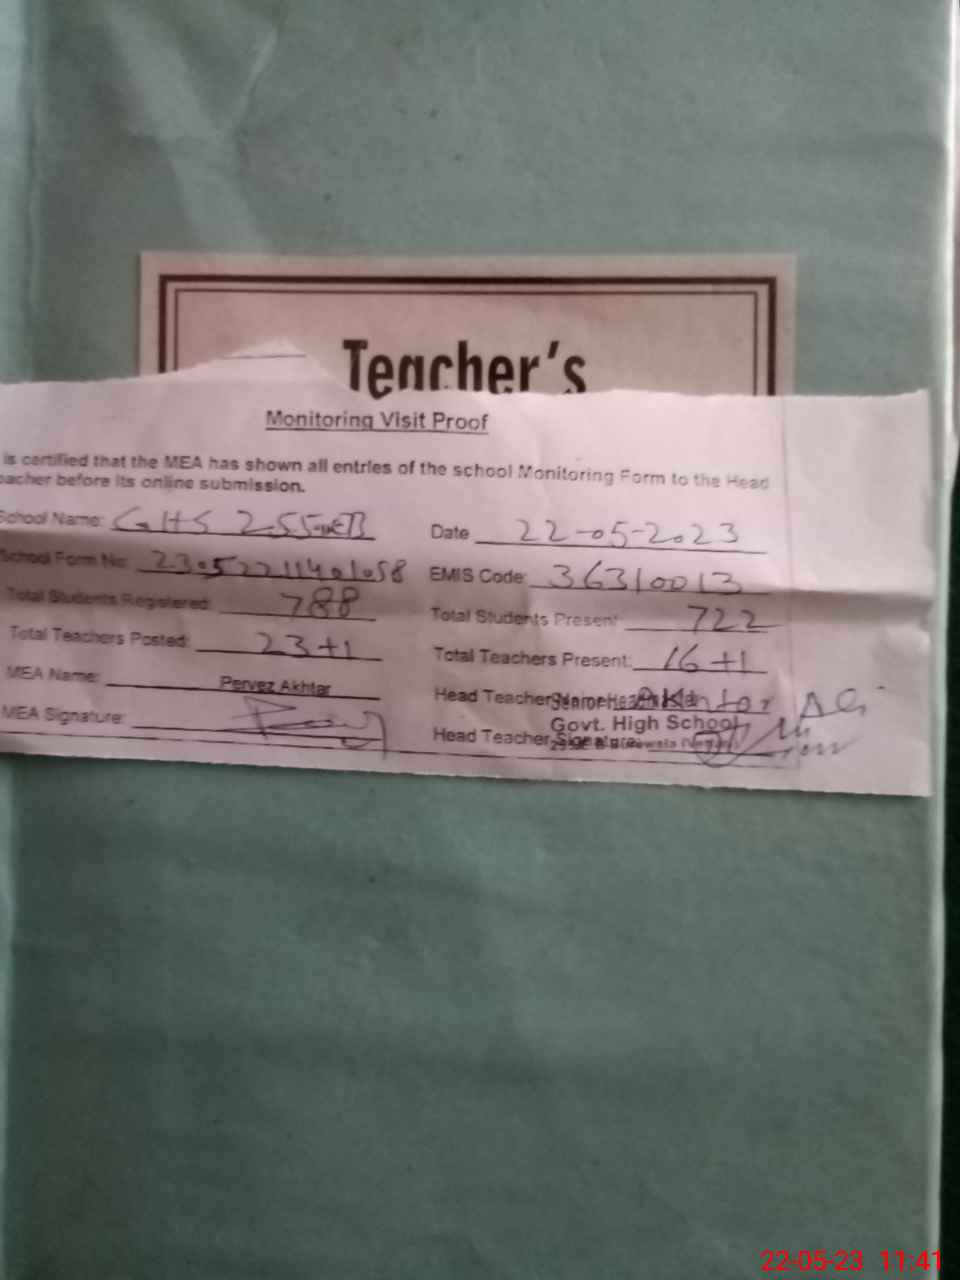 Teacher's
Monitoring Visit Proof
is certified that the MEA has shown all entries of the school Monitoring Form to the Head
eacher before its online submission.
School Name: GHS 255 EB
Date 22-05-2023
School Form No: 23052211401058
EMIS Code: 36310013
Total Students Registered: 788
Total Students Present 722
Total Teachers Posted: 23+1
Total Teachers Present: 16+1
MEA Name: Pervez Akhtar
Head Teacher
MEA Signature:
Govt. High School
Head Teacher Signature
22-05-23 11:41